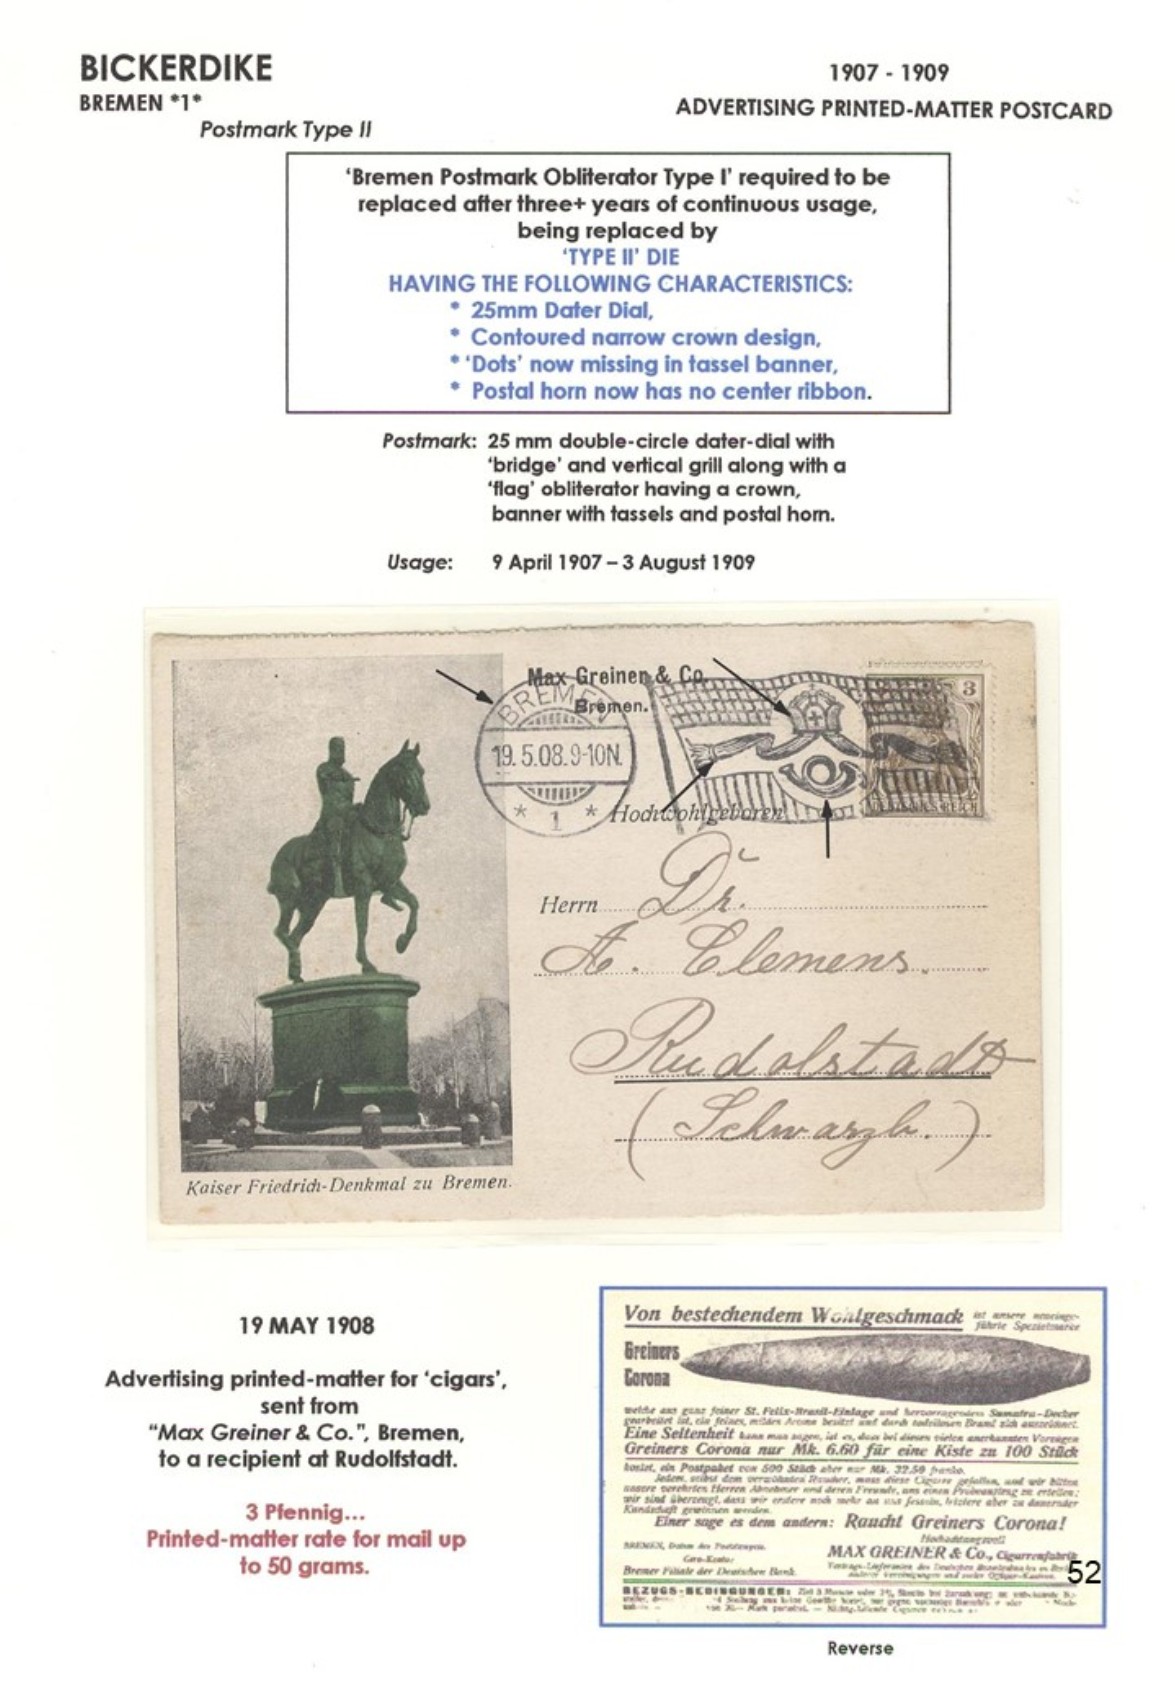 BICKERDIKE
BREMEN *1*
Postmark Type II
1907 - 1909
ADVERTISING PRINTED-MATTER POSTCARD
‘Bremen Postmark Obliterator Type I’ required to be
replaced after three+ years of continuous usage,
being replaced by
‘TYPE II’ DIE
HAVING THE FOLLOWING CHARACTERISTICS:
* 25mm Dater Dial,
* Contoured narrow crown design,
* ‘Dots’ now missing in tassel banner,
* Postal horn now has no center ribbon.
Postmark: 25 mm double-circle dater-dial with
‘bridge’ and vertical grill along with a
‘flag’ obliterator having a crown,
banner with tassels and postal horn.
Usage: 9 April 1907 – 3 August 1909
Max Greinen & Co.
Bremen.
BREMEN
19.5.08.9-10N.
* 1 *
3
DEUTSCHES REICH
Hochwohlgeboren
Herrn Dr.
A. Clemens.
Rudolstadt
(Schwarzb.)
Kaiser Friedrich-Denkmal zu Bremen.
19 MAY 1908
Advertising printed-matter for ‘cigars’,
sent from
“Max Greiner & Co.”, Bremen,
to a recipient at Rudolfstadt.
3 Pfennig...
Printed-matter rate for mail up
to 50 grams.
Von bestechendem Wohlgeschmack ist unsere neueinge-
führte Spezialmarke
Greiners
Corona
welche aus ganz feiner St. Felix-Brasil-Einlage und hervorragendem Sumatra-Decker
gearbeitet ist, ein feines, mildes Aroma besitzt und durch tadellosen Brand sich auszeichnet.
Eine Seltenheit kann man sagen, ist es, dass bei diesen vielen anerkannten Vorzügen
Greiners Corona nur Mk. 6.60 für eine Kiste zu 100 Stück
kostet, ein Postpaket von 500 Stück aber nur Mk. 32.50 franko.
Jedem, selbst dem verwöhntesten Raucher, muss diese Cigarre gefallen, und wir bitten
unsere verehrten Herren Abnehmer und deren Freunde, uns einen Probeauftrag zu erteilen;
wir sind überzeugt, dass wir erstere noch mehr an uns fesseln, letztere aber zu dauernder
Kundschaft gewinnen werden.
Einer sage es dem andern: Raucht Greiners Corona!
Hochachtungsvoll
BREMEN, Datum des Poststempels.
MAX GREINER & Co., Cigarrenfabrik
Giro-Konto:
Bremer Filiale der Deutschen Bank.
52
BEZUGS-BEDINGUNGEN:
Reverse